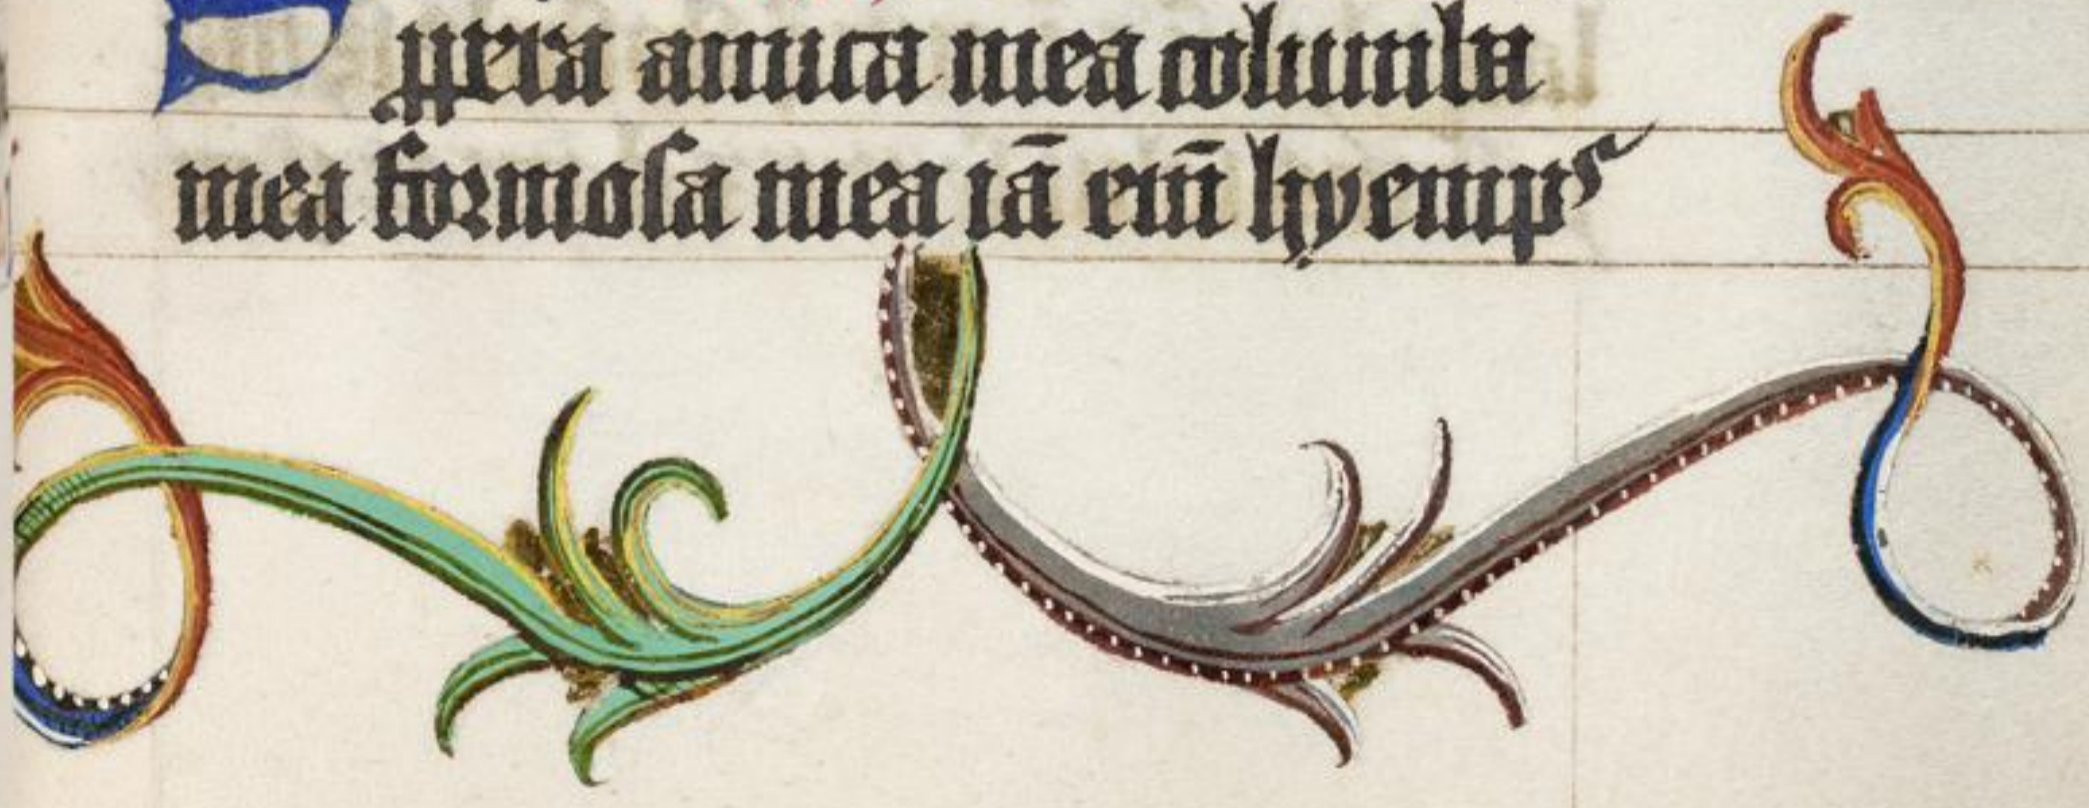 ꝓpera amica mea columba
mea formoſa mea iā enī hyemps